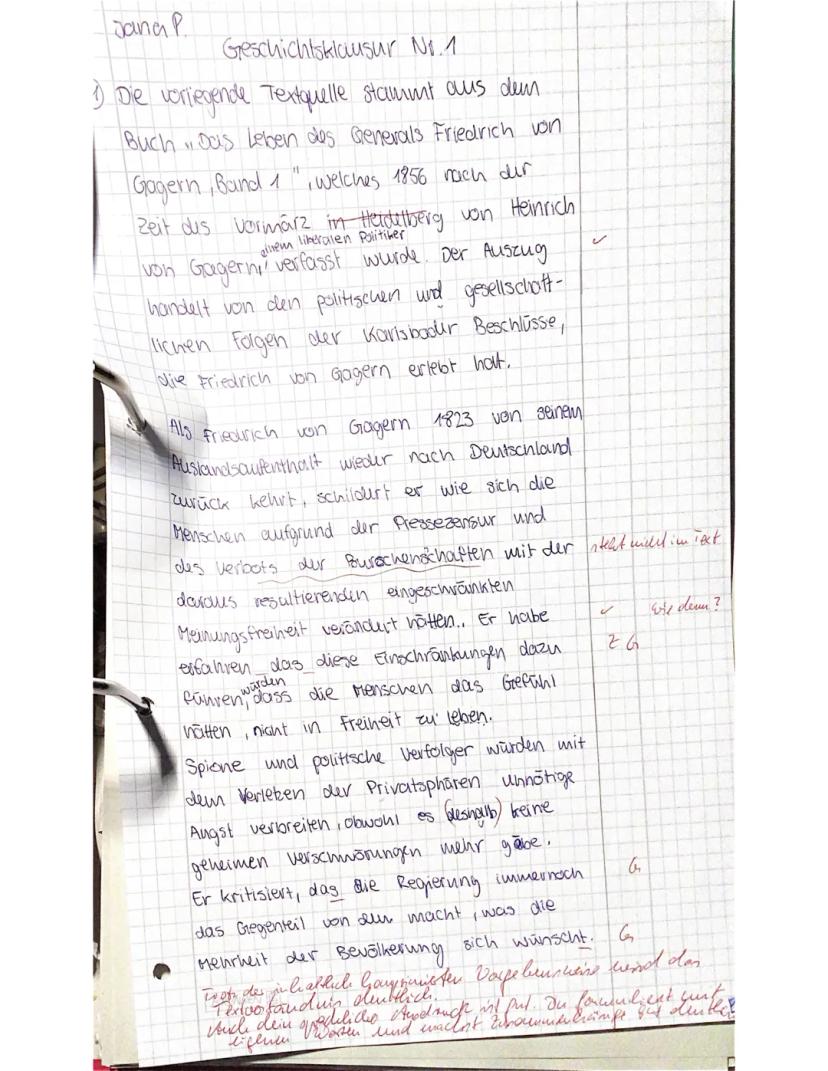 Jana P.
Geschichtsklausur Nr. 1
1) Die vorliegende Textquelle stammt aus dem
Buch „Das Leben des Generals Friedrich von
Gagern, Band 1", welches 1856 nach der
Zeit des Vormärz in Heidelberg von Heinrich
einem liberalen Politiker
von Gagern, verfasst wurde. Der Auszug
handelt von den politischen und gesellschaft-
lichen Folgen der Karlsbader Beschlüsse,
die Friedrich von Gagern erlebt hat.
Als Friedrich von Gagern 1823 von seinem
Auslandsaufenthalt wieder nach Deutschland
zurück kehrt, schildert er wie sich die
Menschen aufgrund der Pressezensur und
des Verbots der Burschenschaften mit der steht nicht im Text
daraus resultierenden eingeschränkten
Meinungsfreiheit verändert hätten. Er habe wie denn?
erfahren das diese Einschränkungen dazu Z G
würden
führen, dass die Menschen das Gefühl
hätten, nicht in Freiheit zu leben.
Spione und politische Verfolger würden mit
dem Verleben der Privatsphären unnötige
Angst verbreiten, obwohl es (deshalb) keine
geheimen Verschwörungen mehr gäbe.
Er kritisiert, das die Regierung immernoch G
das Gegenteil von dem macht, was die
Mehrheit der Bevölkerung sich wünscht. G
Trotz der inhaltlich Vorgehensweise wird das
Textverständnis deutlich.
Auch dein Ausdruck ist gut. Du formulierst mit
eigenen Worten und machst Zusammenhänge gut deutlich